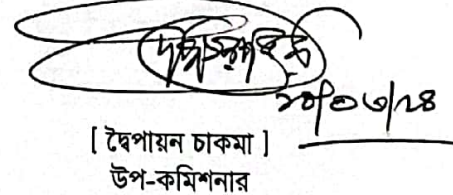 ২০/০৩/২৪
[ দ্বৈপায়ন চাকমা ]
উপ-কমিশনার